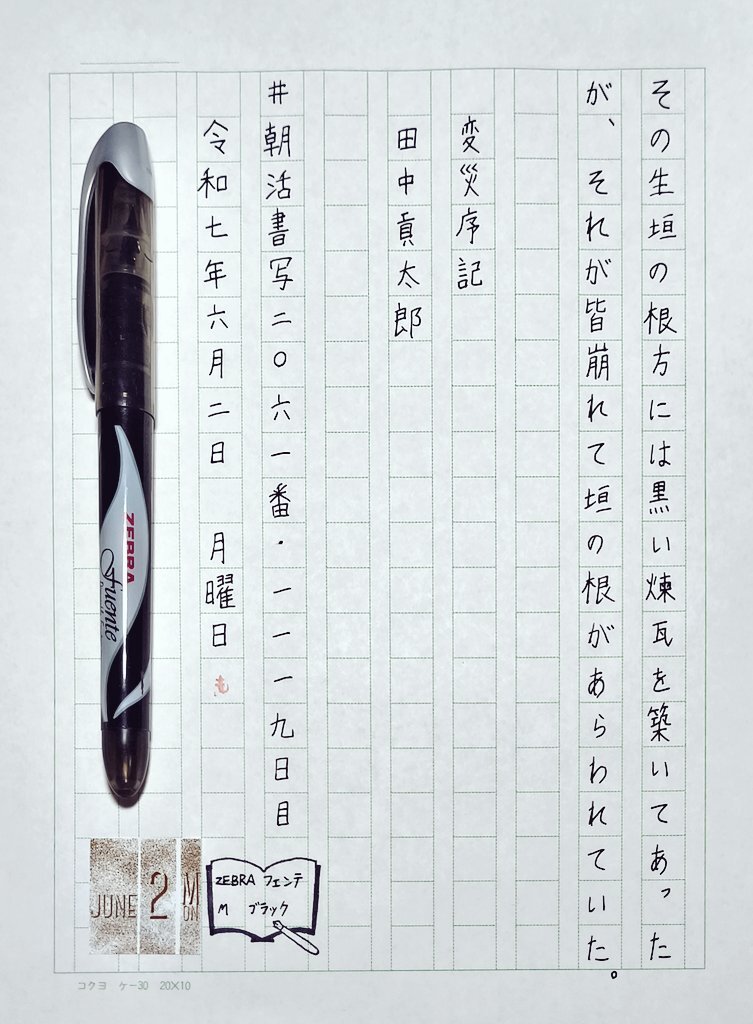 その生垣の根方には黒い煉瓦を築いてあった
が、それが皆崩れて垣の根があらわれていた。
変災序記
田中貢太郎
#朝活書写二〇六一番・一一一九日目
令和七年六月二日　月曜日
ZEBRA
Fuente
JUNE 2 MON
ZEBRA フェンテ
M ブラック
コクヨ ケ-30 20×10